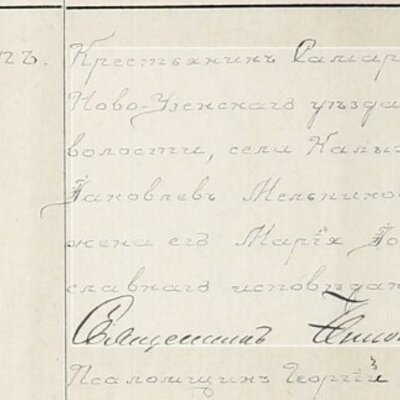 Крестьянинъ Самар
Ново-Узенскаго уѣзда
волости, села Калы
Яковлевъ Мельнико
жена его Марія
славнаго исповѣдан
Священникъ
Псаломщикъ Георгій